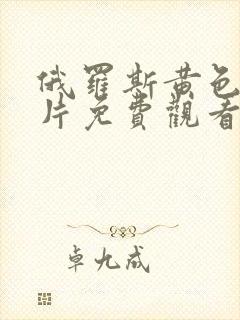 俄羅斯黄色
片免費觀看
卓九成